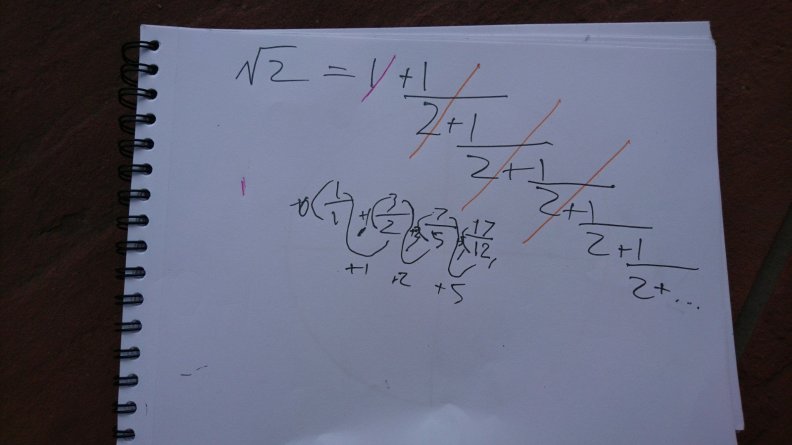 √2 = 1 + 1
2 + 1
2 + 1
2 + 1
2 + 1
2 + ...
1/1 3/2 7/5 17/12
+1 +2 +5